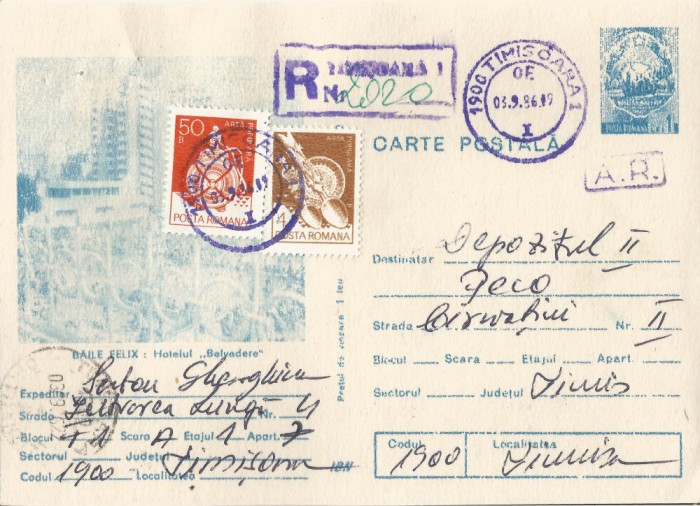 R TIMISOARA 1
Nr. 2020
1900 TIMISOARA 1
OE
03.9.86.09
I
POSTA ROMANA 1
50
B
ARTA POPULARA
POSTA ROMANA
4
ARTA POPULARA
POSTA ROMANA
CARTE POSTALĂ
A.R.
Destinatar Depozitul II
Peco
Strada Nr. II
Blocul Scara Etajul Apart.
Sectorul Județul Timis
Codul 1900 Localitatea
Prețul de vînzare 1 leu
BĂILE FELIX : Hotelul „Belvedere"
Expeditor Gheorghina
Strada Lungă Nr. 4
Blocul Scara A Etajul 1 Apart. 7
Sectorul Județul Timișoara
Codul 1900 Localitatea